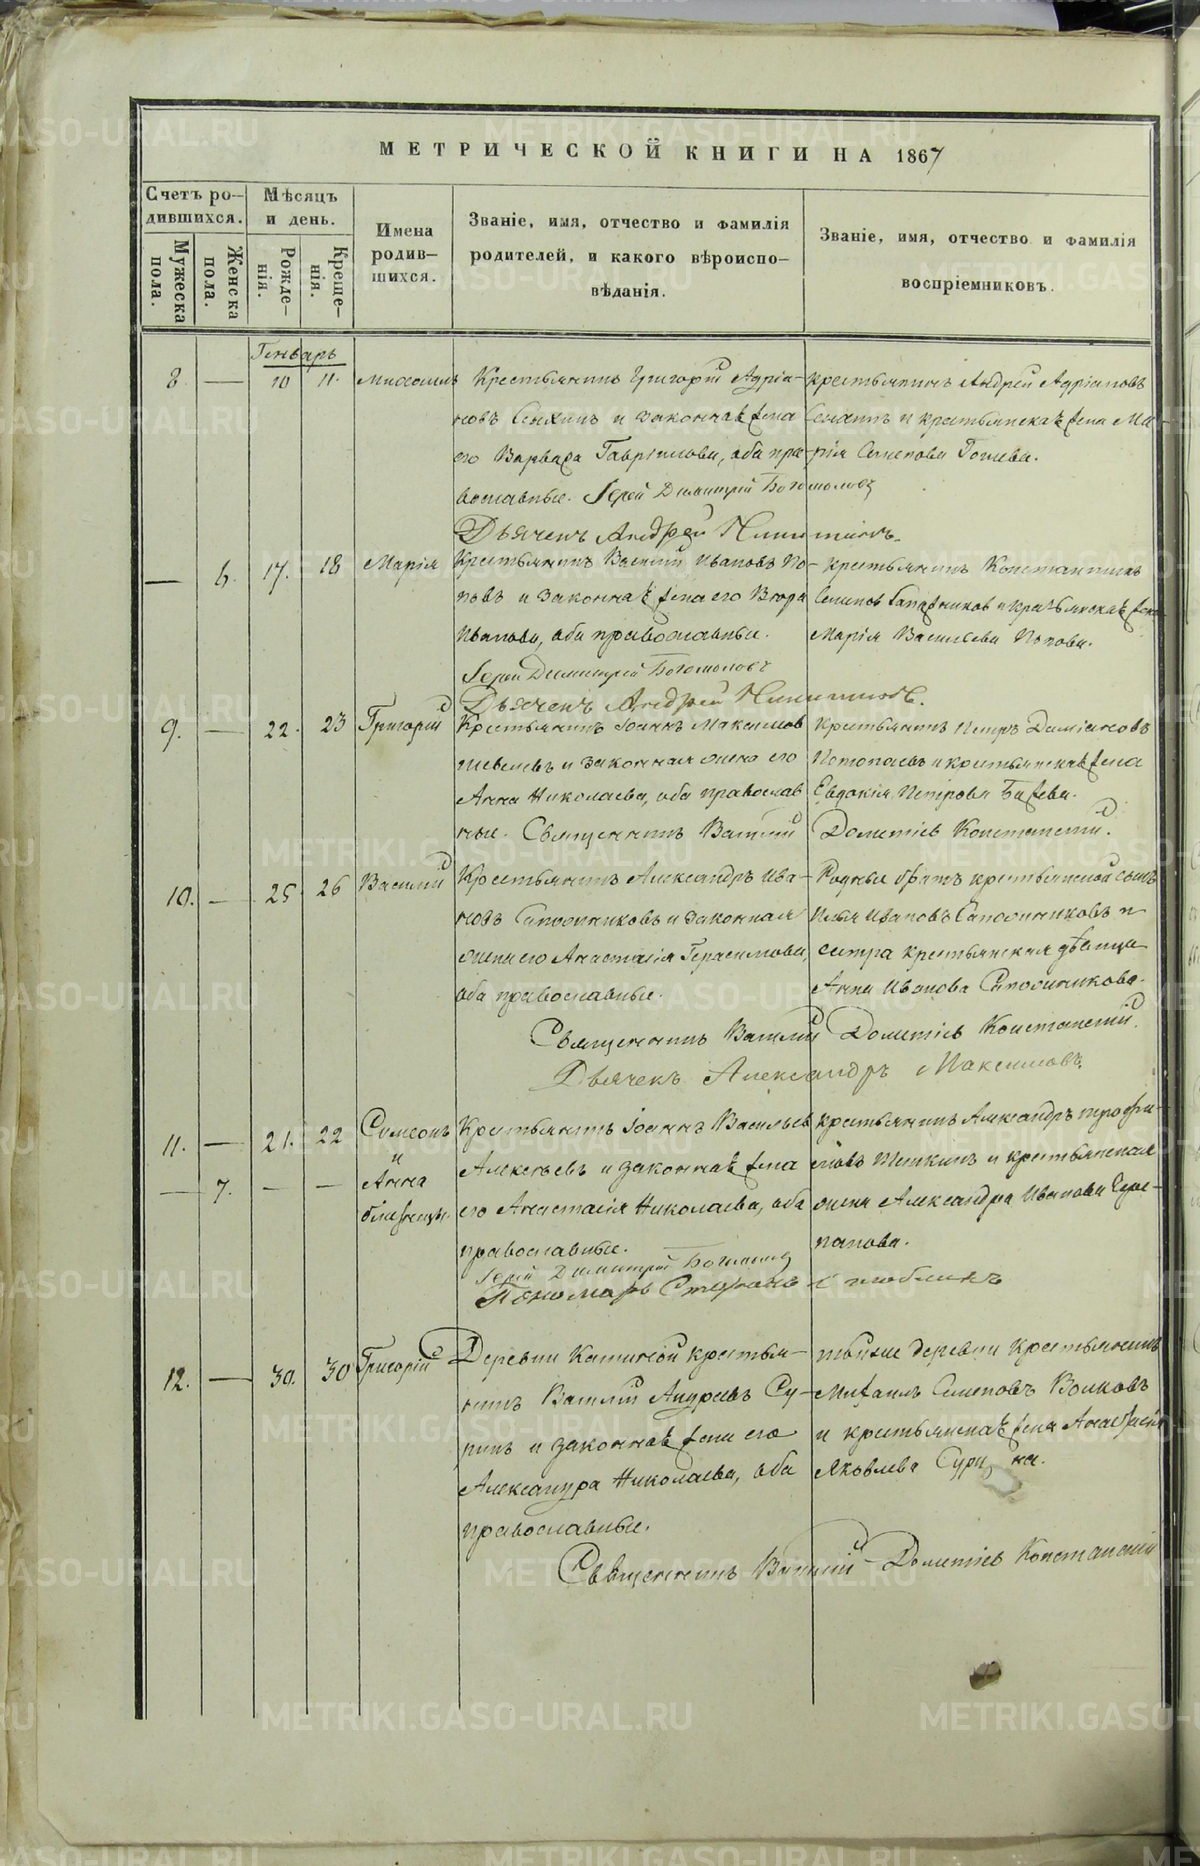 МЕТРИЧЕСКОЙ КНИГИ НА 1867
Счетъ ро-
дившихся.
Мѣсяцъ
и день.
Мужеска
пола.
Женска
пола.
Рожде-
нія.
Креще-
нія.
Имена
родив-
шихся.
Званіе, имя, отчество и фамилія
родителей, и какого вѣроиспо-
вѣданія.
Званіе, имя, отчество и фамилія
воспріемниковъ.
Генварь
8. — 10 11. Михаилъ
Крестьянинъ Григорій Адріа-
новъ и законная жена
его Варвара Гаврилова, оба пра-
вославные. Іерей Димитрій Богомоловъ
Дьячекъ Андрей Никитинъ.
крестьянинъ Андрей Адріановъ
и крестьянская жена Ма-
рія Семенова
— 6. 17. 18 Марія
Крестьянинъ Василій Ивановъ По-
повъ и законная жена его
Иванова, оба православные.
Іерей Димитрій Богомоловъ
Дьячекъ Андрей Никитинъ.
крестьянинъ Константинъ
и крестьянская жена
Марія Васильева Попова.
9. — 22. 23 Григорій
Крестьянинъ Іоаннъ Максимов
и законная жена его
Анна Николаева, оба православ
ные. Священникъ Василій Дометіев
крестьянинъ Петръ Даміановъ
Потопаевъ и крестьянская жена
Евдокія Петрова
10. — 25 26 Василій
Крестьянинъ Александръ Ива-
новъ Сапожниковъ и законная
жена его Анастасія Герасимова,
оба православные.
Родные братъ крестьянской сынъ
Илья Ивановъ Сапожниковъ и
сестра крестьянская дѣвица
Анна Иванова Сапожникова.
Священникъ Василій Дометіев
Дьячекъ Александръ Максимовъ
11. — 21. 22 Симеонъ
и
— 7. — — Анна
близнецы.
Крестьянинъ Іоаннъ Васильев
Алексѣевъ и законная жена
его Анастасія Николаева, оба
православные.
Іерей Димитрій Богомоловъ
Пономарь Стефанъ
крестьянинъ Александръ Трофи-
мовъ и крестьянская
жена Александра Иванова Чере-
панова.
12. — 30. 30 Григорій
Деревни крестья-
нинъ Василій Андреевъ Су-
ринъ и законная жена его
Александра Николаева, оба
православные.
тойже деревни крестьянинъ
Михаилъ Семеновъ Волковъ
и крестьянская жена Анастасія
Яковлева Сурина.
Священникъ Василій Дометіев